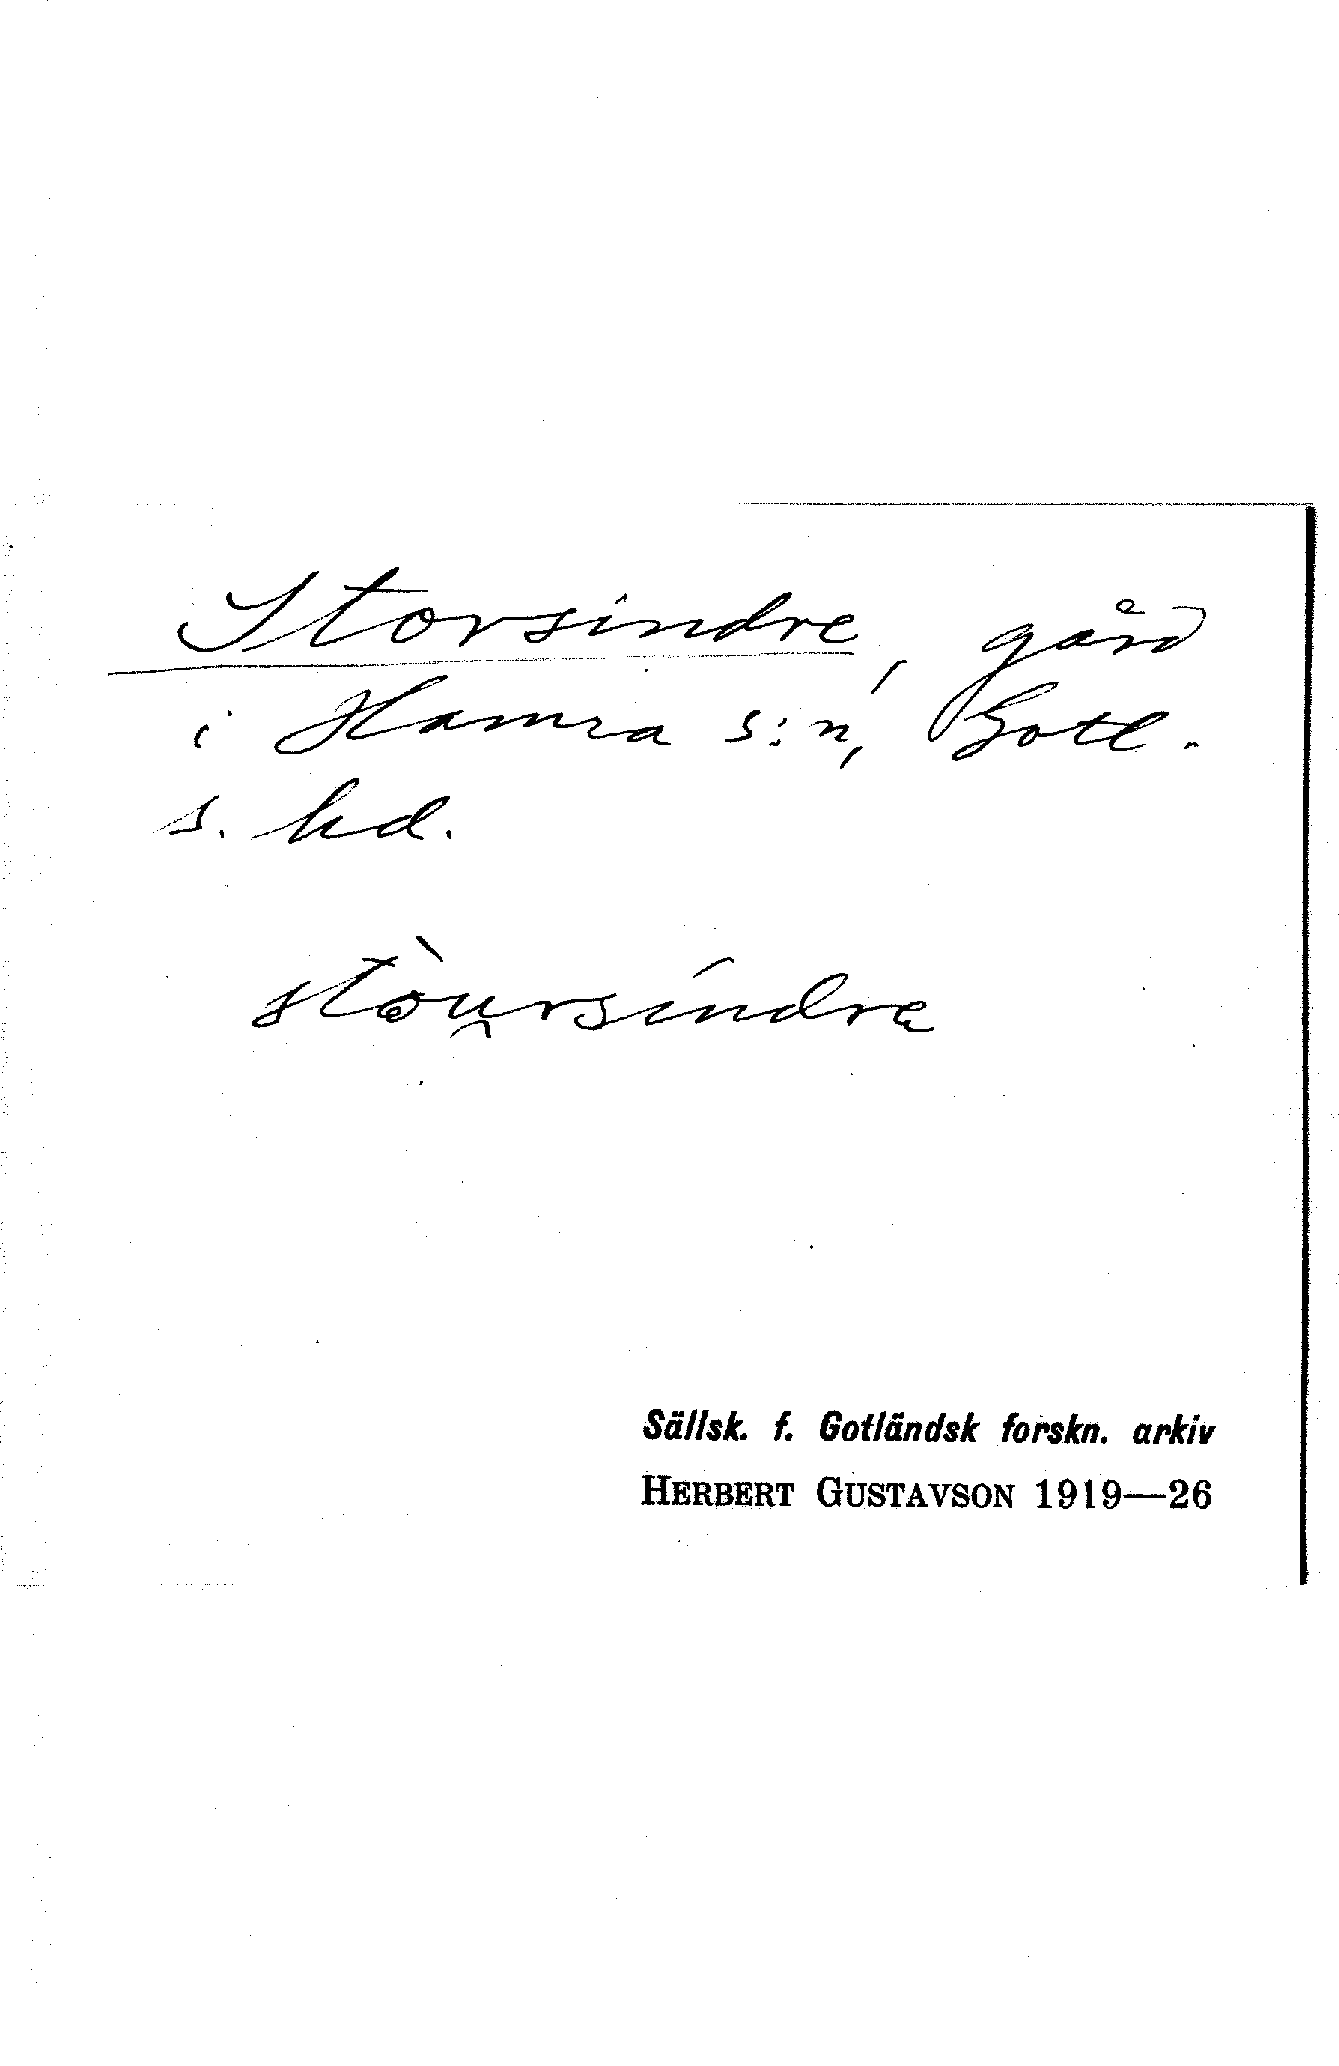 Storsindre, gård
i Hamra s:n, Gotl.
s. hd.
stòu̯rsíndrę
Sällsk. f. Gotländsk forskn. arkiv
HERBERT GUSTAVSON 1919—26